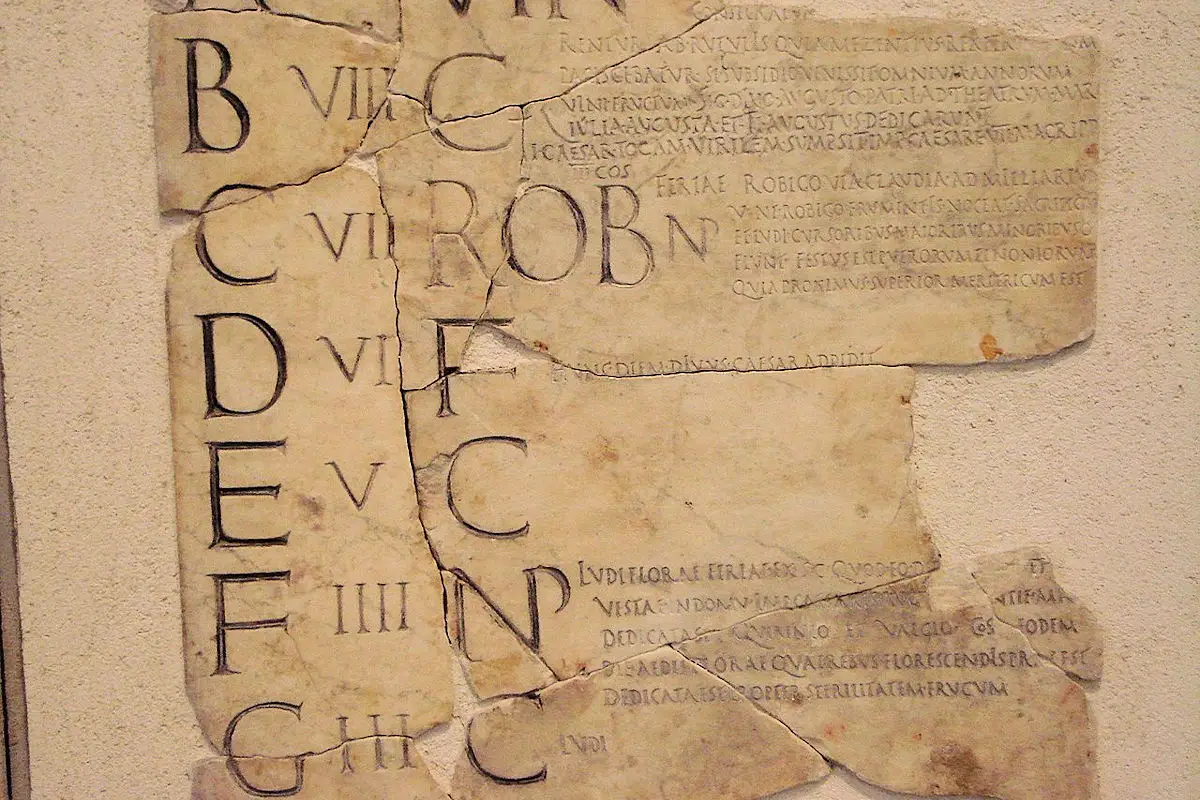 VIN
CONSECRA
B VIII C RENTUR AB RUTULIS QUIA MEZENTIUS REX
PACISCEBATUR SI SUBSIDIO VENISSET OMNIUM ANNORUM
VINI FRUCTUM SIG DIVO AUGUSTO PATRI AD THEATRUM MAR
IULIA AUGUSTA ET TI AUGUSTUS DEDICARUNT
TI CAESAR TOGAM VIRILEM SUMPSIT IMP CAESARE VII M AGRIPP
III COS
C VII ROB NP FERIAE ROBIGO VIA CLAUDIA AD MILLIARIV
V NE ROBIGO FRUMENTIS NOCEAT SACRIFICIV
ET LUDI CURSORIBUS MAIORIBUS MINORIBUSQ
FIUNT FESTUS EST PUERORUM LENONIORUM
QUIA PROXIMUS SUPERIOR MERETRICUM EST
D VI F HUNC DIEM DIVUS CAESAR ADDIDIT
E V C
F IIII NP LUDI FLORAE FERIAE EX SC QUOD EO D ET
VESTA IN DOMU IMP CAESAR AUG
DEDICATAST QUIRINIO ET VALGIO COS EODEM
DIE AEDIS FLORAE QUAE REBUS FLORESCENDIS PRAEEST
DEDICATA EST PROPTER STERILITATEM FRUGUM
G III C LUDI